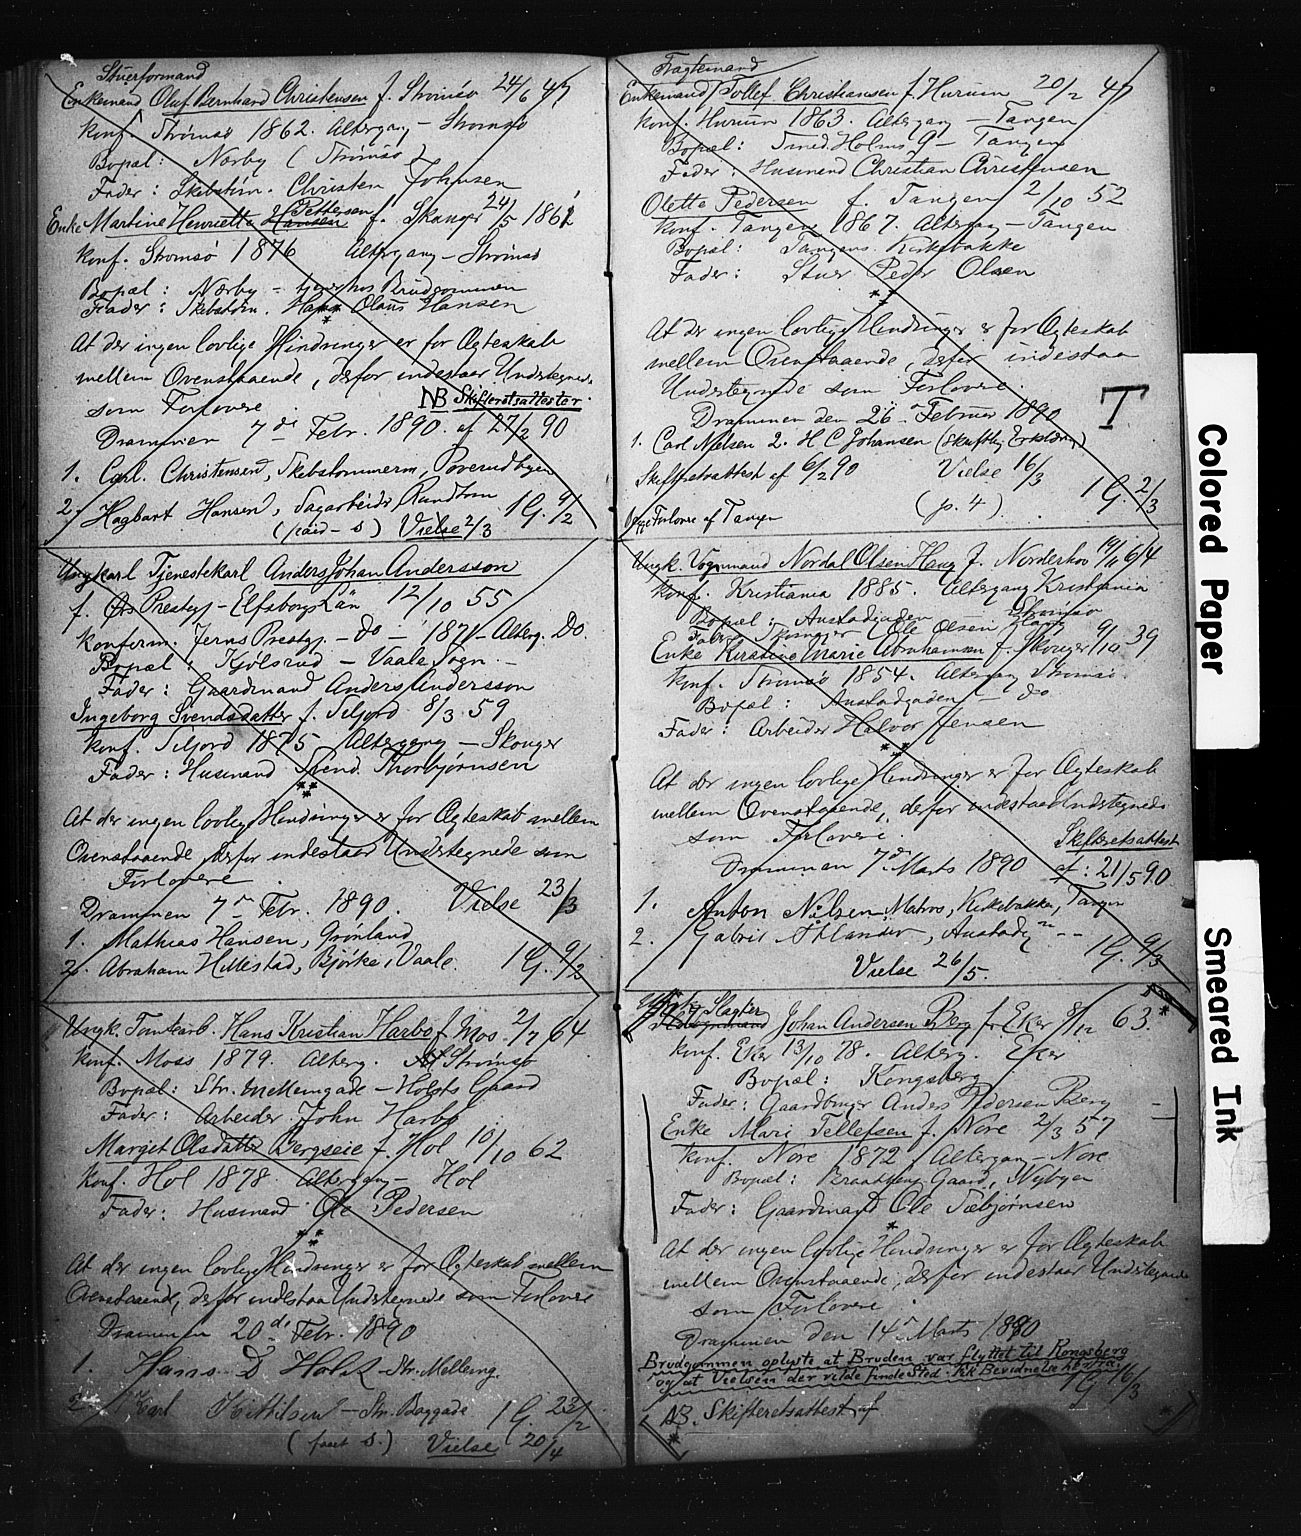 Stuerformand
Enkemand Oluf Bernhard Christensen f. Strømsø 24/6 47
konf. Strømsø 1862. Altergang – Strømsø
Bopæl: Nærby (Strømsø)
Fader: Skibstøm. Christen Johnsen
Enke Martine Henriette Hansen Pettersen f. Skouger 24/5 1861
konf. Strømsø 1876 Altergang – Strømsø
Bopæl: Nærby – Brudgommen
Fader: Skibstøm. Hans Olaus Hansen
At der ingen lovlige Hindringer er for Ægteskab
mellem Ovenstaaende, derfor indestaar Undertegnede
som Forlovere. NB Skifteretsattester
Drammen 7de Febr. 1890. af 27/2 90
1. Carl Christensen, Skibstømmerm,
2. Hagbart Hansen, Sagarbeider, Rundtom 1 G. 9/2
Vielse 2/3
Ungkarl Tjenestekarl Anders Johan Andersson
f. Ørs Prestegj – Elfsborgs Län 12/10 55
konferm. Jerns Prestgj. – do – 1871 – Alterg. Do.
Bopæl: Kjølsrud – Vaale Sogn. –
Fader: Gaardmand Anders Andersson
Ingeborg Svendsdatter f. Siljord 8/3 59
konf. Siljord 1875 Altergang – Skouger
Fader: Husmand Svend Thorbjørnsen
At der ingen lovlige Hindringer er for Ægteskab mellem
Ovenstaaende derfor indestaar Undertegnede som
Forlovere
Drammen 7de Febr. 1890. Vielse 23/3
1. Mathias Hansen, Grønland
2. Abraham Hillestad, Bjørke, Vaale. 1 G. 9/2
Ungk. Tomtearb. Hans Kristian Harbo f. Mos. 2/7 64
konf. Moss 1879. Alterg. Strømsø
Bopæl: Str. Mellemgade – Holsts Gaard
Fader: Arbeider John Harbo
Margit Olsdatter Bergseie f. Hol 10/10 62
konf. Hol 1878 Altergang – Hol
Fader: Husmand Ole Pedersen
At der ingen lovlige Hindringer er for Ægteskab mellem
Ovenstaaende, derfor indestaa Undertegnede som Forlovere
Drammen 20de Febr. 1890
1. Hans D Holst – Str. Mellemg.
2. Karl Kittilsen – Str. Baggade 1 G. 23/2
Vielse 20/4
Fragtemand
Enkemand Tollef Christiansen f. Hurum 20/2 47
konf. Hurum 1863. Altergang – Tangen
Bopæl: Smed. Holms G – Tangen
Fader: Husmand Christian Christensen
Olette Pedersen f. Tangen 2/10 52
konf. Tangen 1867. Altergang – Tangen
Bopæl: Tangens Kirkebakke
Fader: Stuer Peder Olsen
At der ingen lovlige Hindringer er for Ægteskab
mellem Ovenstaaende derfor indestaa
Undertegnede som Forlovere.
Drammen den 26 Februar 1890 T.
1. Carl Nielsen 2. H C Johansen (Skriftlig Erklæring)
Skifteretsattest af 6/2 90 Vielse 16/3
(p. 4) 1 G. 2/3
begge Forlovere af Tangen
Ungk. Vognmand Nordal Olsen Haug f. Norderhov 19/11 64
konf. Kristiania 1885. Altergang Kristiania
Bopæl: Austadgaden Strømsø
Fader: Ole Olsen Haug
Enke Kirstine Marie Abrahamsen f. Skouger 9/10 39
konf. Strømsø 1854. Altergang Strømsø.
Bopæl: Austadgaden – do
Fader: Arbeider Halvor Jensen
At der ingen lovlige Hindringer er for Ægteskab
mellem Ovenstaaende, derfor indestaar Undertegnede
som Forlovere. Skifteretsattest
Drammen 7de Marts 1890 af: 21/5 90
1. Anton Nilsen Matros, Kirkebakken, Tangen
2. Gabriel Ahlander, Austadg 1 G. 9/3
Vielse 26/5.
Slagter
Johan Andersen Berg f. Eker 8/12 63. *
konf. Eker 13/10 78. Alterg. Eker
Bopæl: Kongsberg
Fader: Gaardbruger Anders Pedersen Berg
Enke Mari Tellefsen f. Nore 2/3 57
konf. Nore 1872 Altergang – Nore
Bopæl: Gaard, Nybyen
Fader: Gaardmand Ole Tæbjørnsen
At der ingen lovlige Hindringer er for Ægteskab
mellem Ovenstaaende, derfor indestaar Undertegnede
som Forlovere
Drammen den 14de Marts 1890
Brudgommen oplyste at Bruden var flyttet til Kongsberg
og at Vielsen der vilde finde Sted.
1 G 16/3
NB. Skifteretsattest af
Colored Paper
Smeared Ink